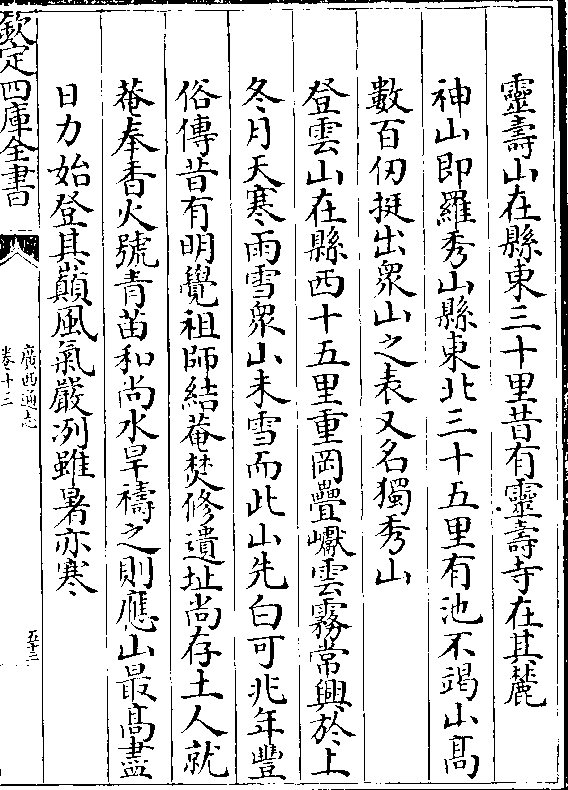 靈壽山在縣東三十里昔有靈壽寺在其麓
神山即羅秀山縣東北三十五里有池不竭山髙
數百仞挺出衆山之表又名獨秀山
登雲山在縣西十五里重岡疊巘雲霧常興於上
冬月天寒雨雪衆山未雪而此山先白可兆年豐
俗傳昔有明覺祖師結菴焚修遺址尚存土人就
菴奉香火號青苗和尚水旱禱之則應山最髙盡
日力始登其巔風氣嚴冽雖暑亦寒
欽定四庫全書
廣西通志
卷十三
五十二